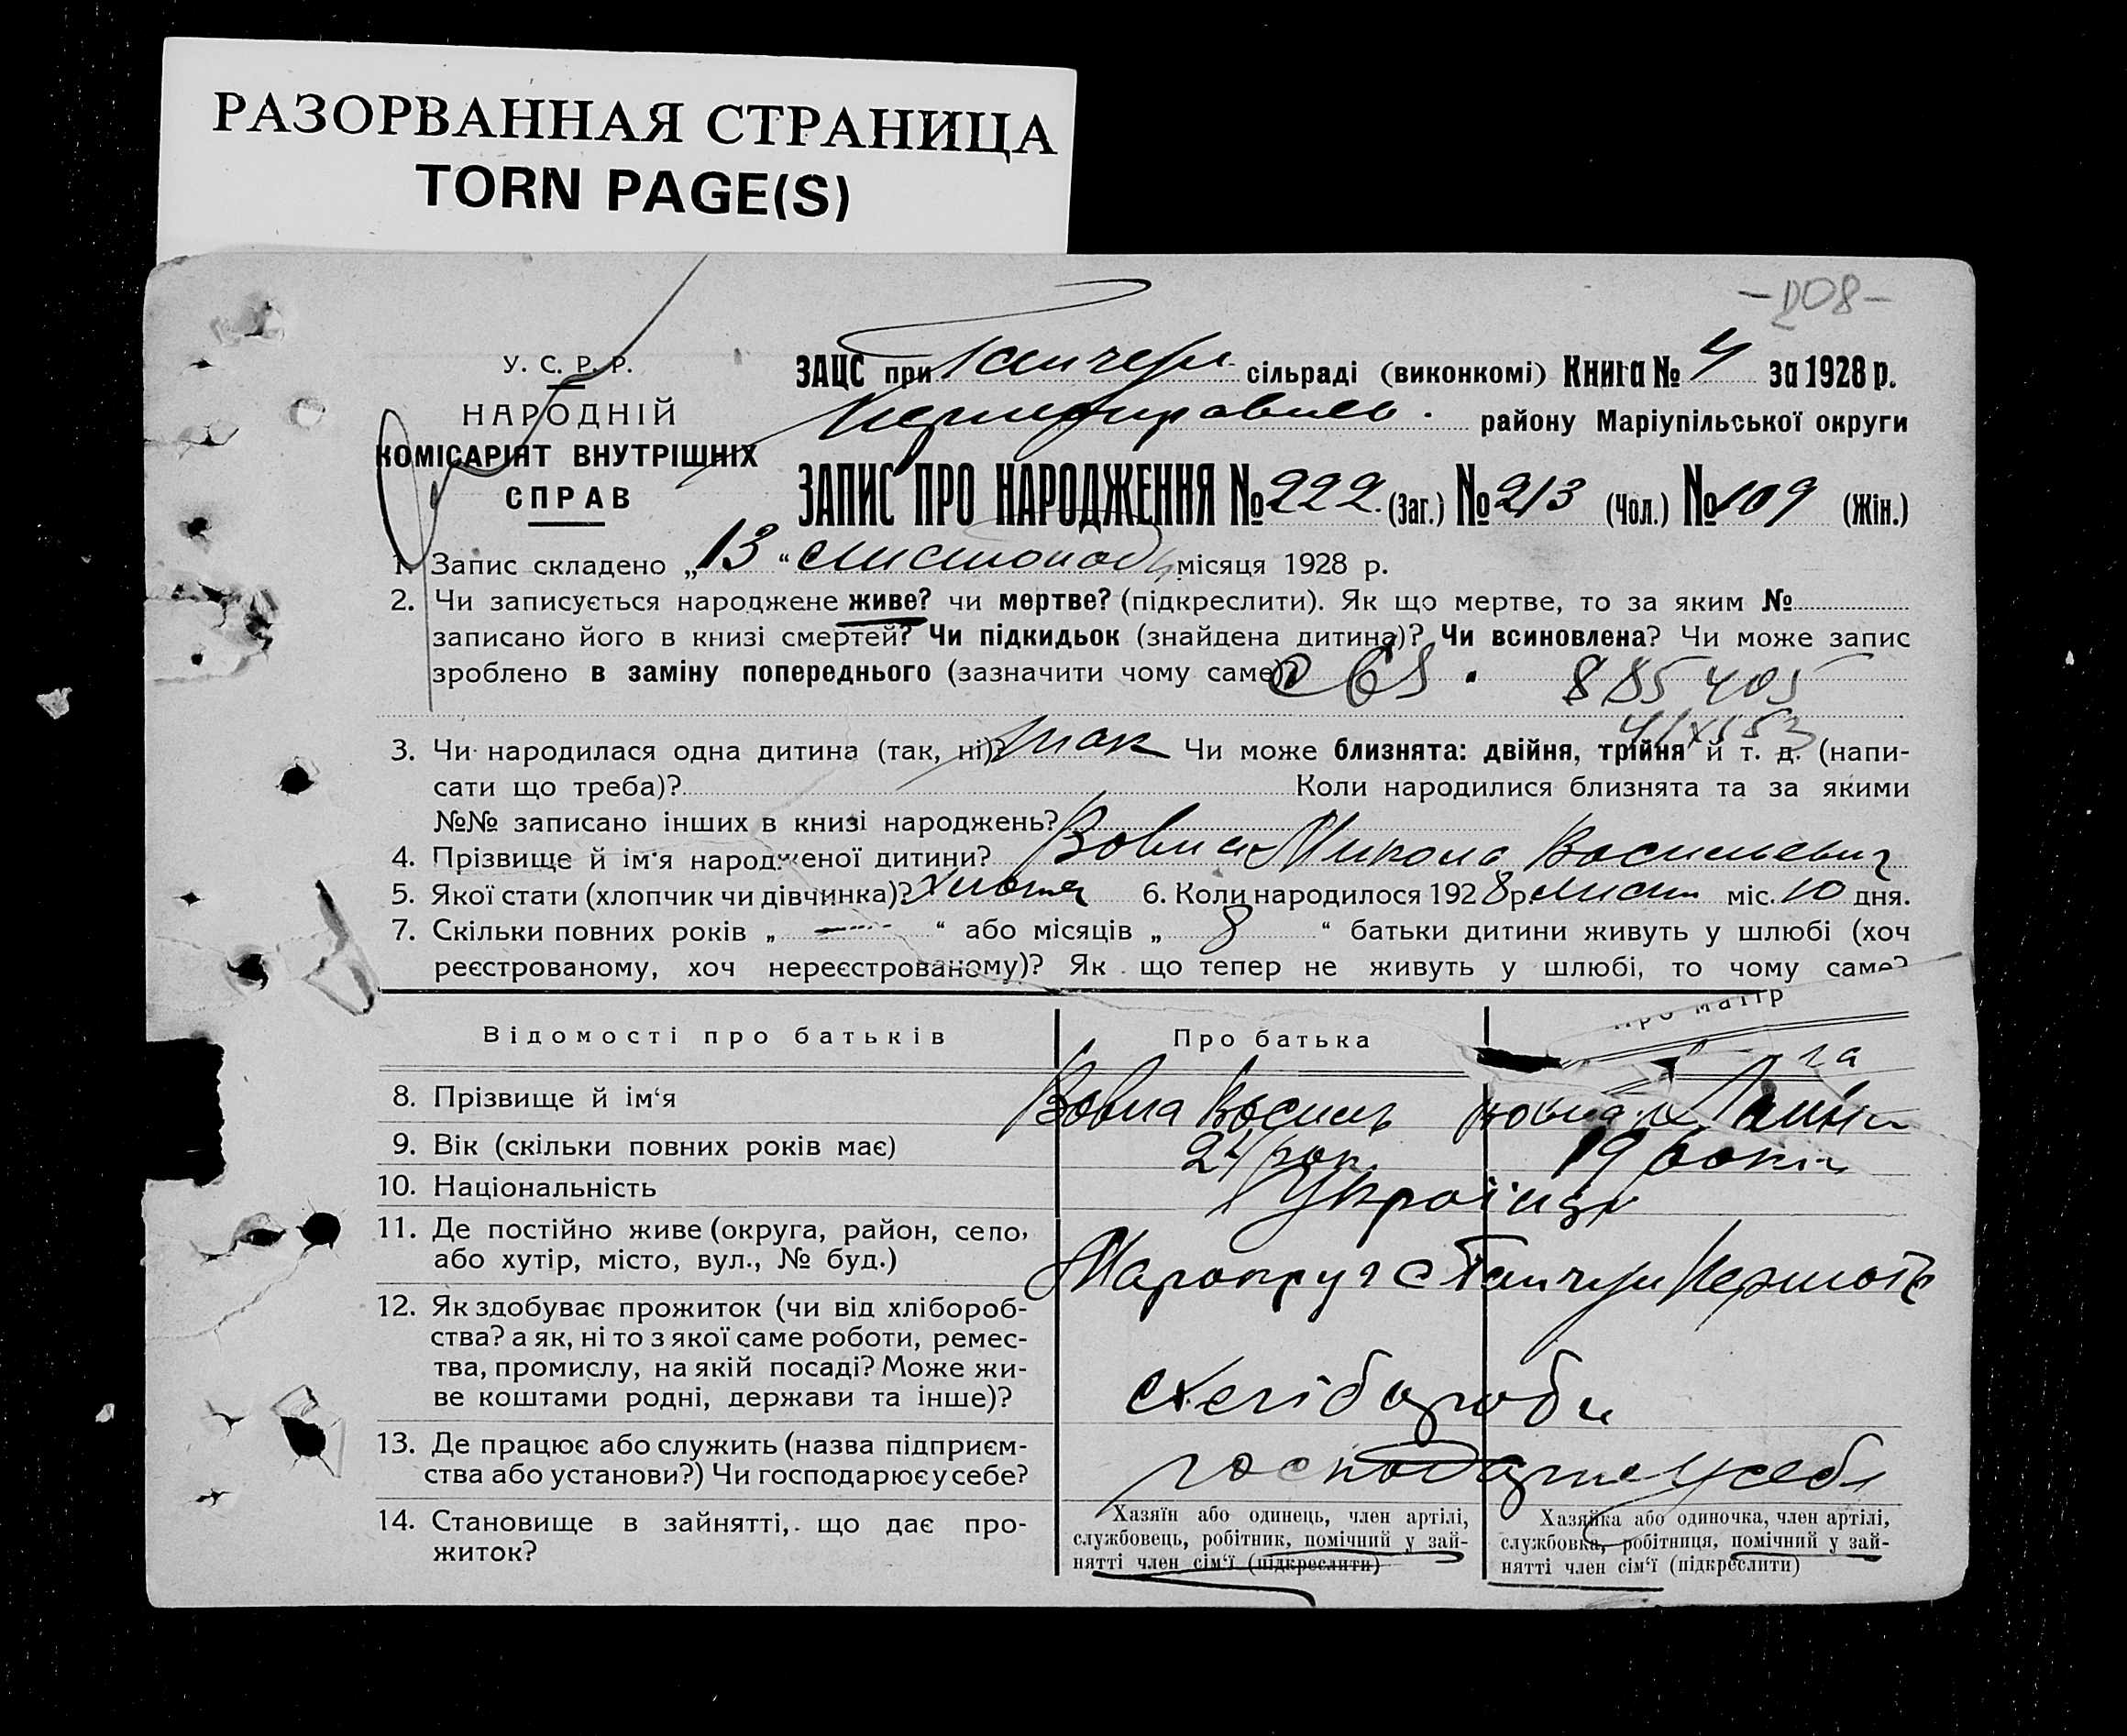 РАЗОРВАННАЯ СТРАНИЦА
TORN PAGE(S)
У. С. Р. Р.
НАРОДНІЙ
КОМІСАРІЯТ ВНУТРІШНІХ
СПРАВ
ЗАЦС при сільраді (виконкомі) Книга № 4 за 1928 р.
району Маріупільської округи
ЗАПИС ПРО НАРОДЖЕННЯ № 222 (Заг.) № 213 (Чол.) № 109 (Жін.)
1. Запис складено „13“ листопада місяця 1928 р.
2. Чи записується народжене живе? чи мертве? (підкреслити). Як що мертве, то за яким №
записано його в книзі смертей? Чи підкидьок (знайдена дитина)? Чи всиновлена? Чи може запис
зроблено в заміну попереднього (зазначити чому саме)?
3. Чи народилася одна дитина (так, ні)? так Чи може близнята: двійня, трійня й т. д. (напи-
сати що треба)? Коли народилися близнята та за якими
№№ записано інших в книзі народжень?
4. Прізвище й ім'я народженої дитини? Вовна Микола Васильевич
5. Якої стати (хлопчик чи дівчинка)? 6. Коли народилося 1928 р. лист міс. 10 дня.
7. Скільки повних років „ — “ або місяців „ 8 “ батьки дитини живуть у шлюбі (хоч
реєстрованому, хоч нереєстрованому)? Як що тепер не живуть у шлюбі, то чому саме?
Відомості про батьків
Про батька
Про матір
8. Прізвище й ім‘я
Вовна Василь
9. Вік (скільки повних років має)
19 років
10. Національність
Українці
11. Де постійно живе (округа, район, село,
або хутір, місто, вул., № буд.)
12. Як здобуває прожиток (чи від хлібороб-
ства? а як, ні то з якої саме роботи, ремес-
тва, промислу, на якій посаді? Може жи-
ве коштами родні, держави та інше)?
хлібороби
13. Де працює або служить (назва підприєм-
ства або установи?) Чи господарює у себе?
14. Становище в зайнятті, що дає про-
житок?
Хазяїн або одинець, член артілі,
службовець, робітник, помічний у зай-
нятті член сім‘ї (підкреслити)
Хазяйка або одиночка, член артілі,
службовка, робітниця, помічний у зай-
нятті член сім‘ї (підкреслити)